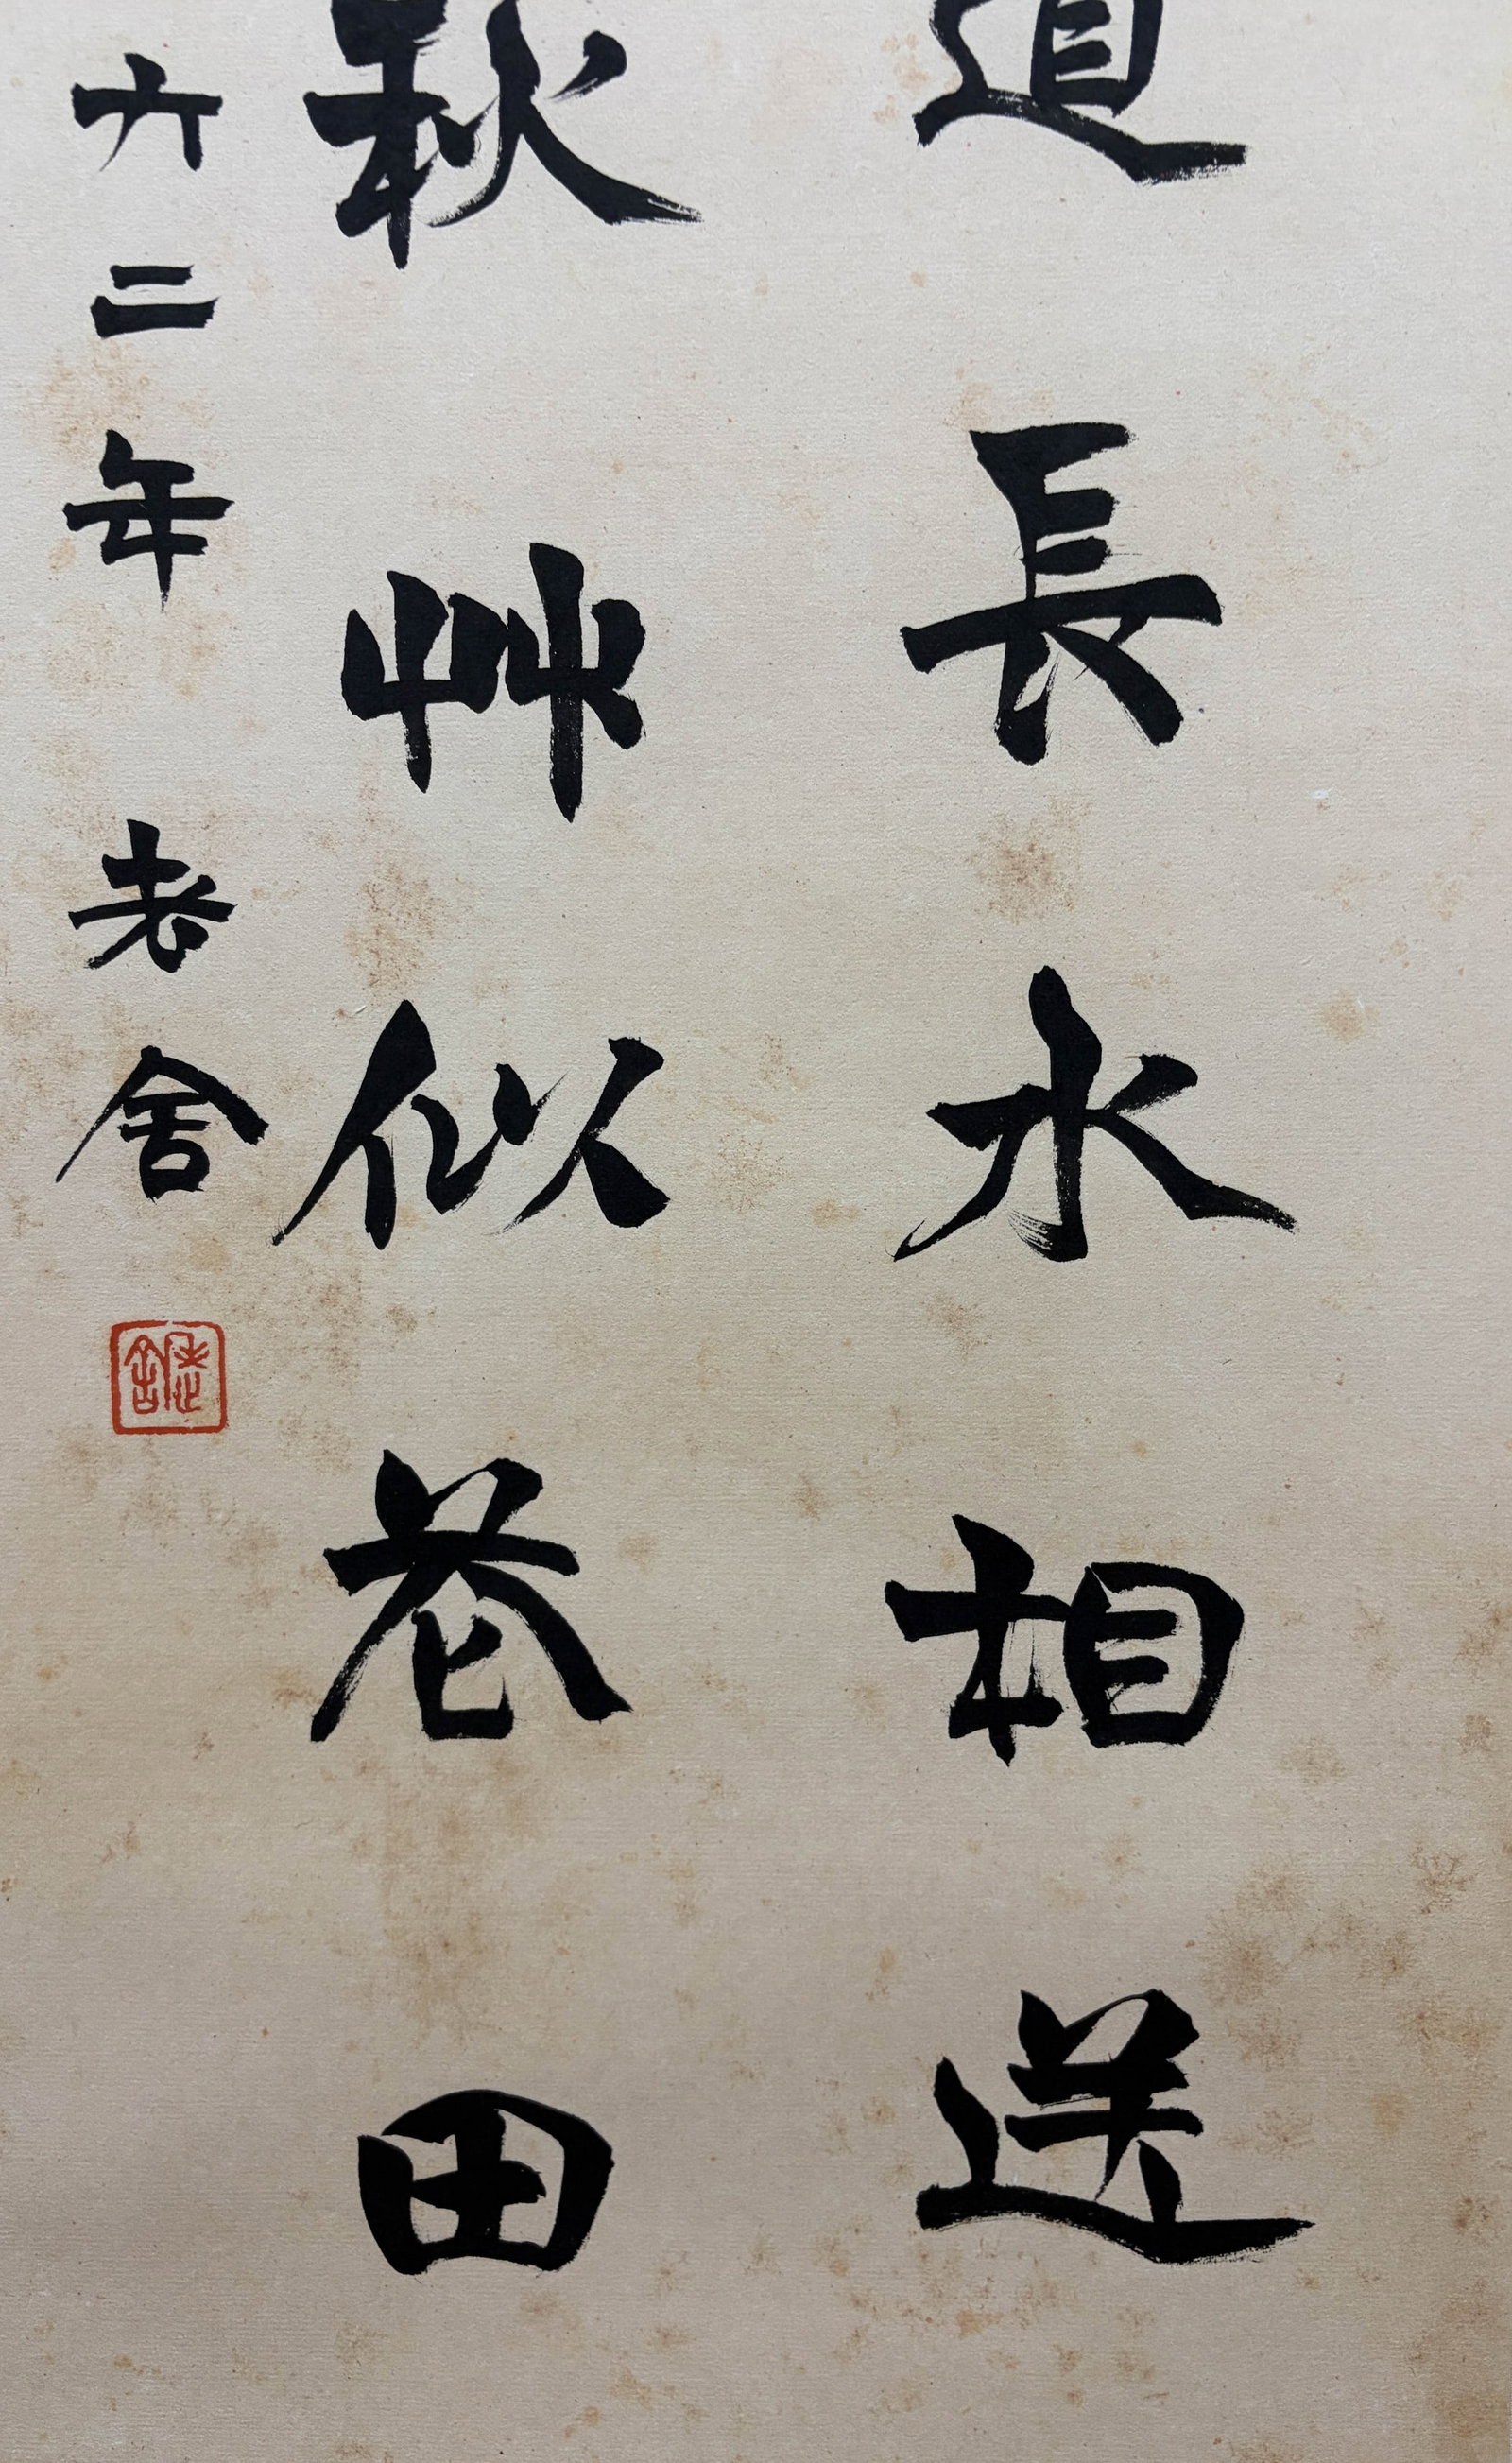 道長水相送
秋艸似苍田
六二年 老舍
老舍